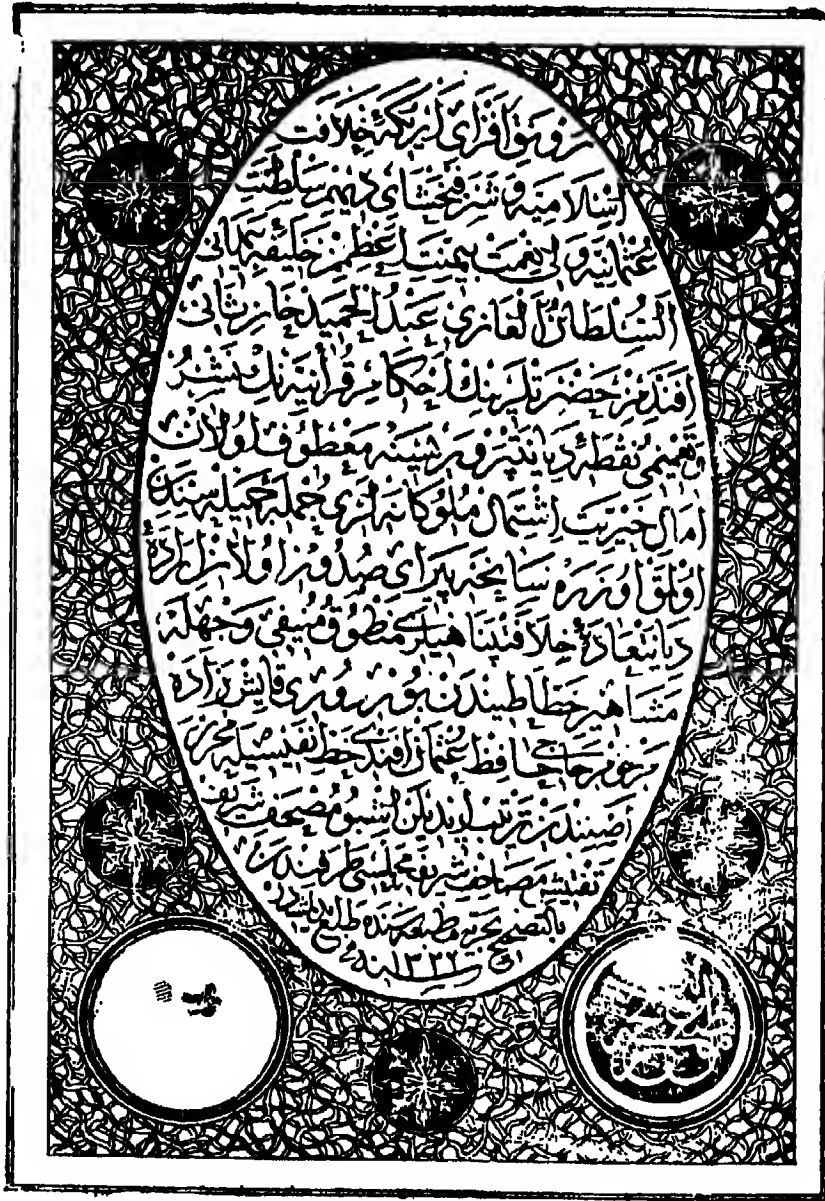 رونق افزای اریکهٔ خلافت
اسلامیه و شرفبخشای دیهیم سلطنت
عثمانیه ولی نعمت بیمنت اعظم خلیفهٔ
السلطان الغازی عبد الحمید خان ثانی
افندیمز حضرتلرینك احکام قرآنیه نك نشر
و تعمیمی نقطهٔ دیانتپرورینه معطوف اولان
امال خیریت اشتمال ملوکانه لری جملهٔ جمیله سندن
اولمق اوزره سانحه پیرای صدور اولان ارادهٔ
دیانتعادهٔ خلافتپناهیلری منطوق منیفی وجهله
مشاهیر خطاطیندن بوردوری قایش زاده
مرحوم حاج حافظ عثمان افندی خط نفیسیله محرر
اصلندن ترتیب ایدیلن اشبو مصحف شریف
تفتیش مصاحف شریفه مجلسی طرفندن
بالتصحیح بحریه مطبعه سنده طبع
سنه ١٣٢٢